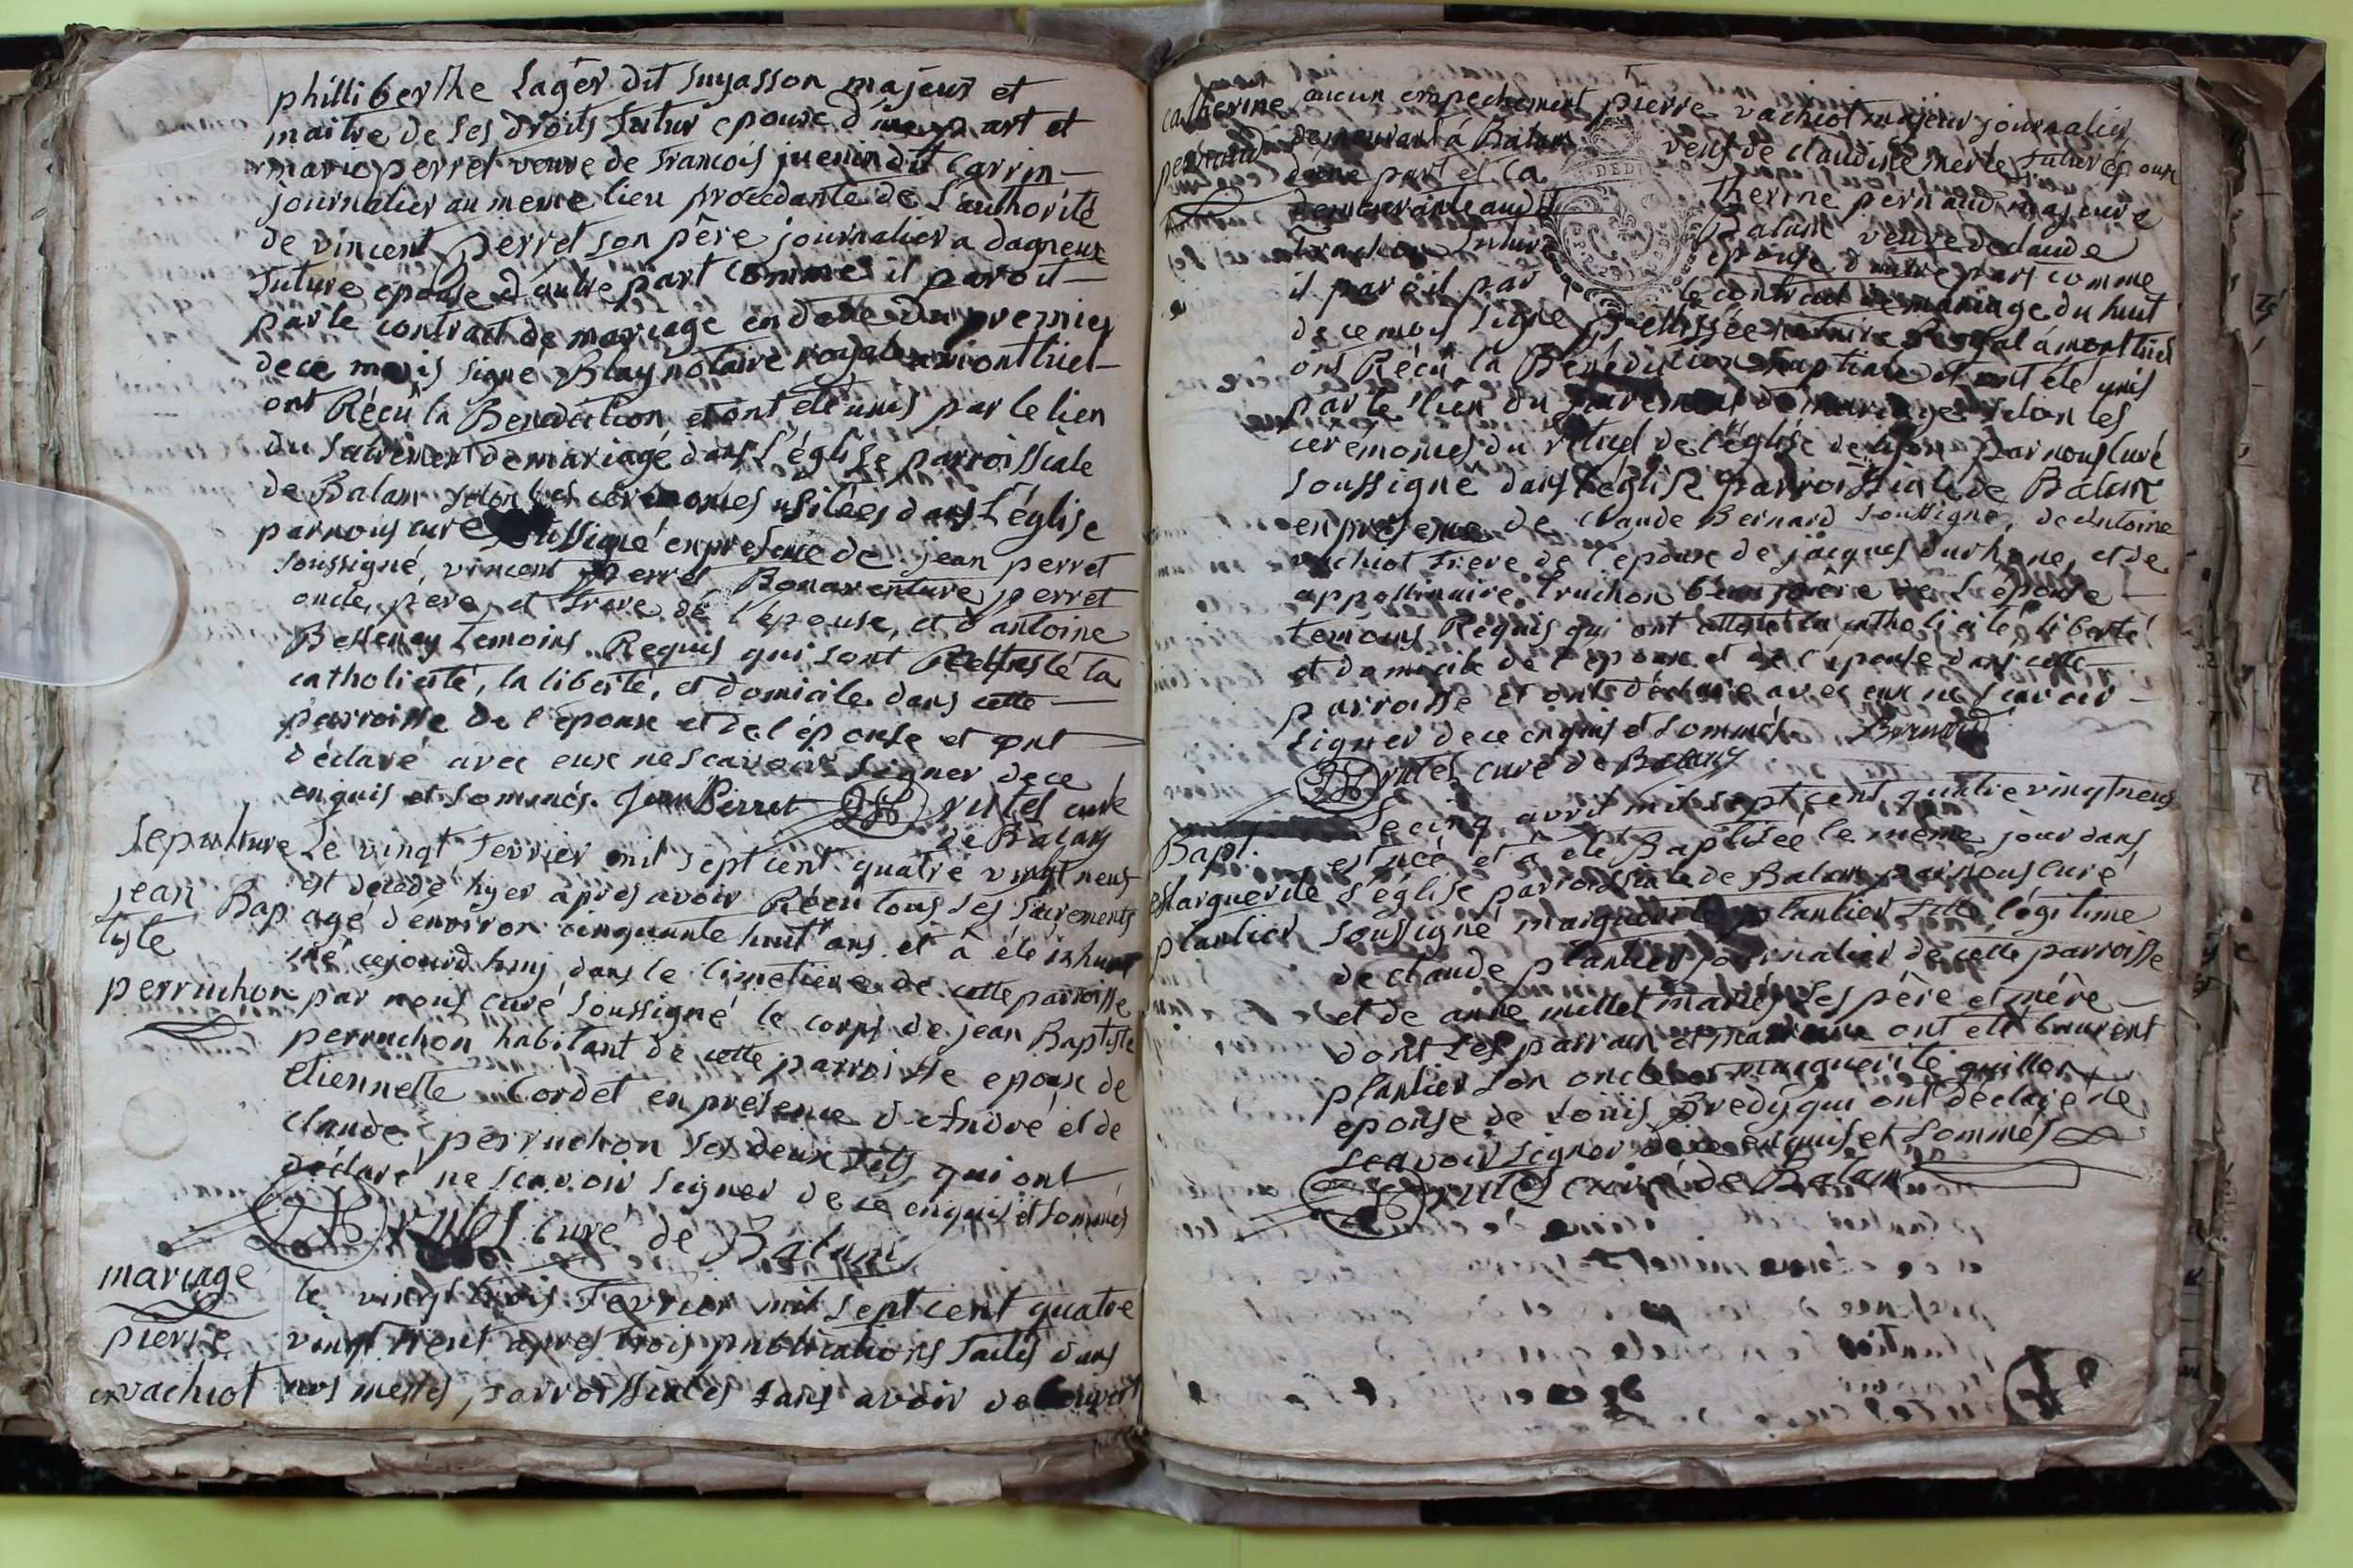 philliberthe Lager dit Suyasson majeur et
maitre de ses droits futur epoux d'une part et
marie perret veuve de francois juenin dit Carrin
journalier au meme lieu procedante de L'authorité
de vincent perret son père journalier a dagneux
future epouse d'autre part comme il paroit
par le contract de mariage en date du premier
de ce mois signé Blay notaire royal a montluel
ont Récu la Benediction et ont eté unis par le lien
du Sacrement de mariage dans l'église parroissiale
de Balan selon les cérémonies usitées dans L'église
par nous curé soussigné en presence de jean perret
soussigné, vincent perret Bonaventure perret
oncle, pere, et frere de l'epouse, et d'antoine
Bessenay temoins Requis qui ont attesté la
catholicité, la liberté, et domicile dans cette
parroisse de l'epoux et de l'épouse et ont
déclaré avec eux ne scavoir signer de ce
enquis et sommés. Jean Perret Drutel curé
de Balan
Sepulture Le vingt fevrier mil sept cent quatre vingt neuf
jean Bap est décédé hyer après avoir Récu tous ses sacrements
tiste agé d'environ cinquante huit ans et à été inhu
mé cejourd'huy dans le cimetiere de cette parroisse
perruchon par nous curé soussigné le corps de jean Baptiste
perruchon habitant de cette parroisse epoux de
Etiennette Cordet en présence d'André et de
claude perruchon ses deux fils qui ont
déclaré ne scavoir signer de ce enquis et sommés
Drutel curé de Balan
mariage le vingt trois Fevrier mil sept cent quatre
pierre vingt neuf apres trois publications faites dans
vachiot nos messes parroissiales sans avoir decouvert
catherine aucun empechement pierre vachiot majeur journalier
pernaud demeurant à Balan veuf de claudine merle futur epoux
d'une part et Ca therine pernaud majeure
demeurante audit Balan veuve de claude
truchon future epouse d'autre part comme
il paroit par le contract de mariage du huit
de ce mois signé pellissée notaire Royal à montluel
ont Récu la Bénédiction nuptiale et ont été unis
par le lien du sacrement de mariage selon les
ceremonies du rituel de l'église de lyon par nous Curé
soussigné dans l'église parroissiale de Balan
en présence de Claude Bernard soussigné, de antoine
vachiot frere de l'epoux de jacques durhone, et de
appollinaire truchon beau père de l'épouse
temoins Requis qui ont attesté la catholicité, liberté
et domicile de l'epoux et de l'épouse dans cette
parroisse et ont déclaré avec eux ne scavoir
signer de ce enquis et sommés Bernard
Drutel curé de Balan
Le cinq avril mil sept cent quatre vingt neuf
Bapt. est née et à été Baptisée le même jour dans
Marguerite l'église parroissiale de Balan par nous curé
plantier soussigné marguerite plantier fille légitime
de claude plantier journalier de cette parroisse
et de anne millet mariés ses père et mère
dont les parrain et marraine ont eté laurent
plantier son oncle et marguerite guillon
epouse de Loüis Bredy qui ont déclaré ne
scavoir signer de ce enquis et sommés
Drutel curé de Balan